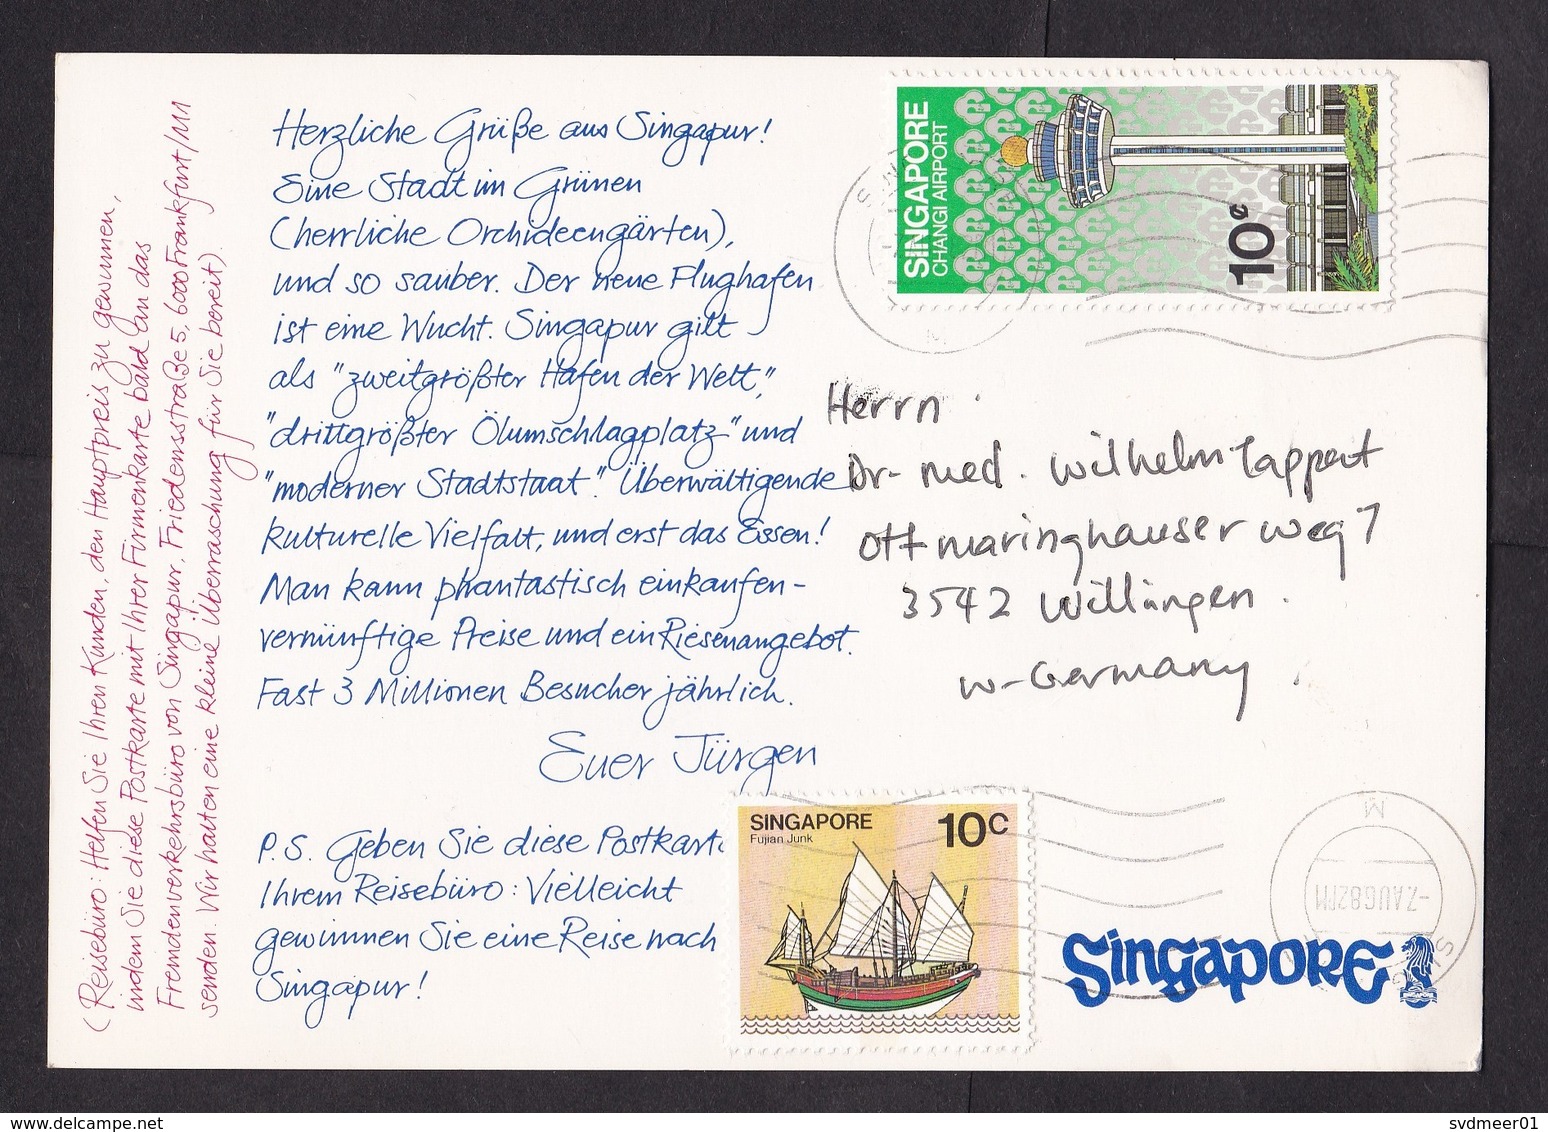 (Reisebüro: Helfen Sie Ihren Kunden, den Hauptpreis zu gewinnen,
indem Sie diese Postkarte mit Ihrer Firmenkarte bald an das
Fremdenverkehrsbüro von Singapur, Friedensstraße 5, 6000 Frankfurt/M1
senden. Wir halten eine kleine Überraschung für Sie bereit).
Herzliche Grüße aus Singapur!
Eine Stadt im Grünen
(herrliche Orchideengärten),
und so sauber. Der neue Flughafen
ist eine Wucht. Singapur gilt
als "zweitgrößter Hafen der Welt,"
"drittgrößter Ölumschlagplatz" und
"moderner Stadtstaat". Überwältigende
kulturelle Vielfalt, und erst das Essen!
Man kann phantastisch einkaufen-
vernünftige Preise und ein Riesenangebot.
Fast 3 Millionen Besucher jährlich.
Euer Jürgen
P.S. Geben Sie diese Postkart
Ihrem Reisebüro: Vielleicht
gewinnen Sie eine Reise nach
Singapur!
SINGAPORE
CHANGI AIRPORT
10¢
Herrn
Dr-med. Wilhelm Tappert
Ottmaringhauser Weg 7
3542 Willingen.
W-Germany.
SINGAPORE
Fujian Junk
10C
M
-7AUG82PM
Singapore
svdmeer01